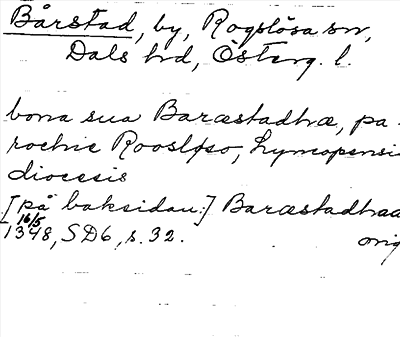 Bårstad, by, Rogslösa sn,
Dals hd, Österg. l.
bona sua Baræstadhæ, pa-
rochie Roosløso, Lyncopensi
diocesis
[på baksidan:] Baræstadhaa
16/5
1348, SD6, s. 32. orig